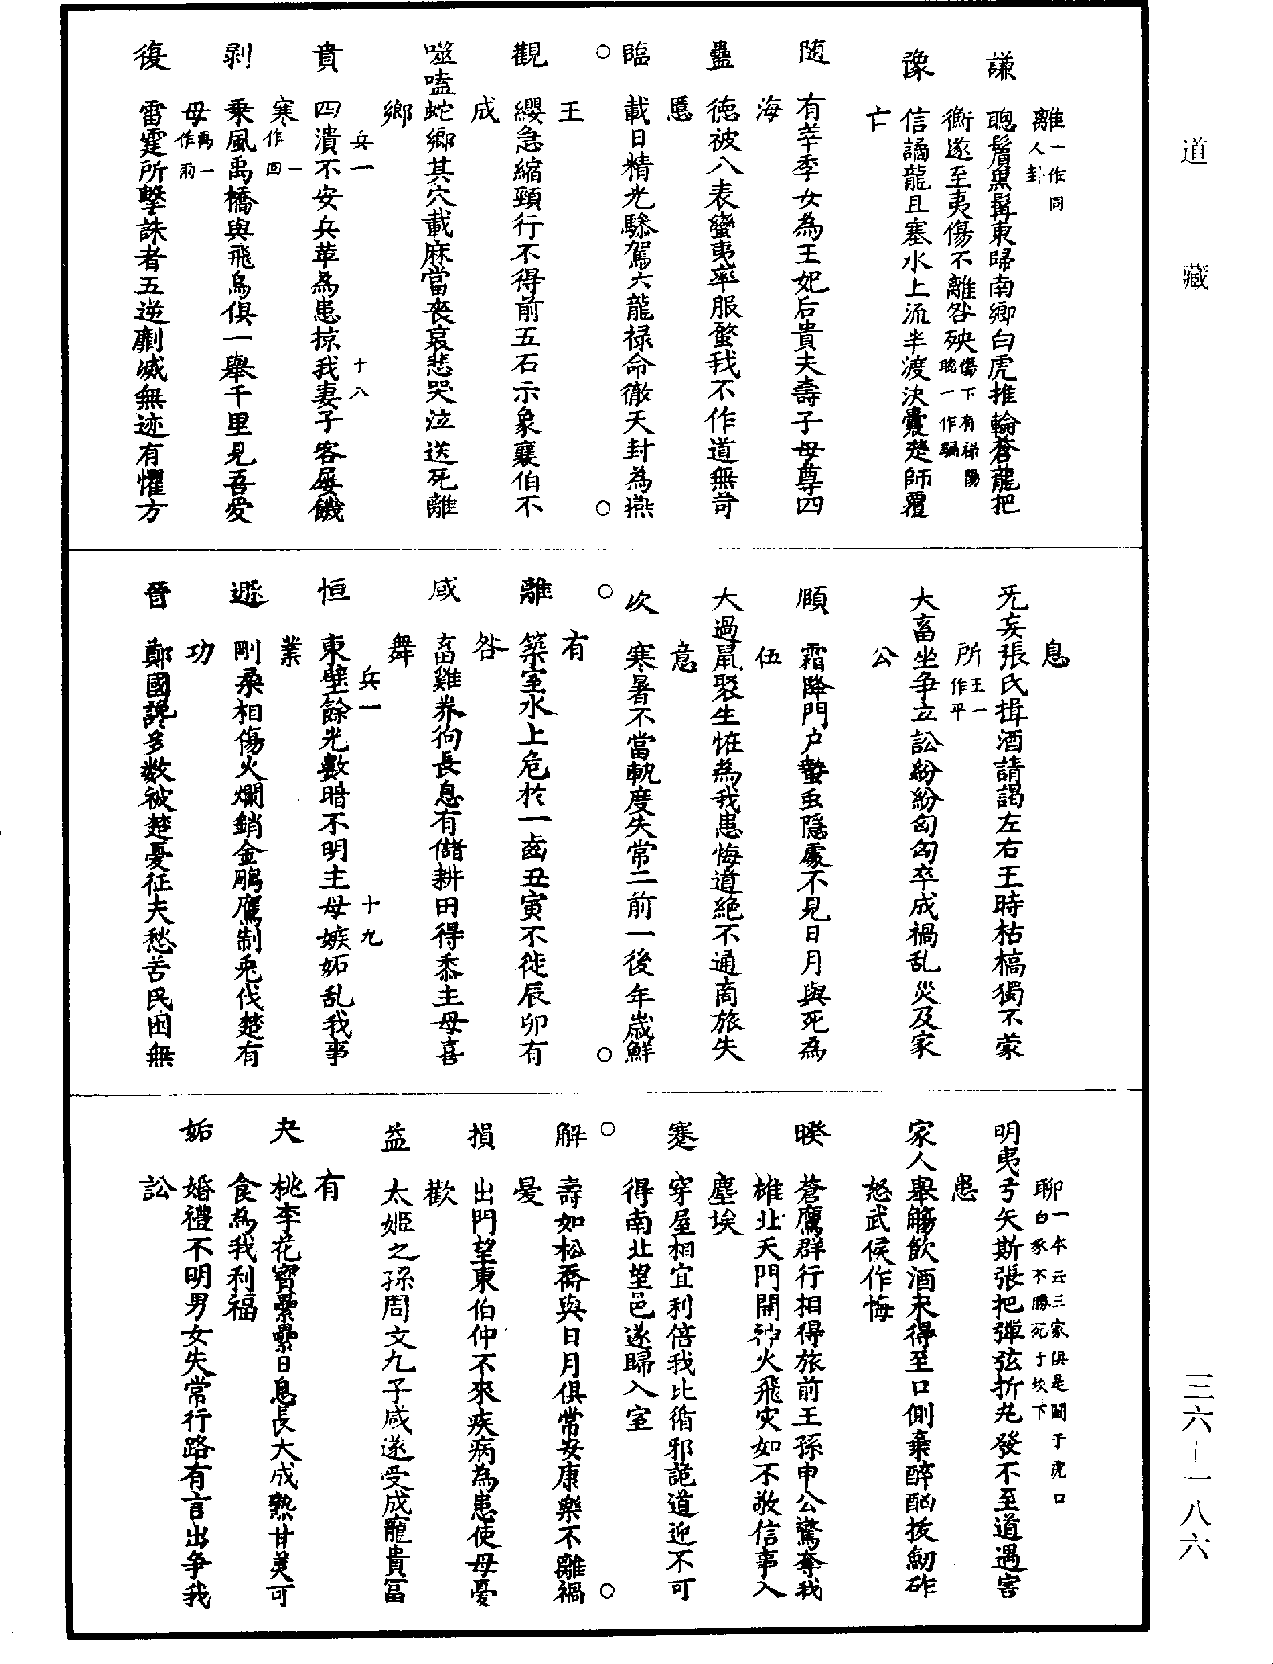 道藏
離一作同人卦
謙 聰鬢黑髯東歸南鄉白虎推輪蒼龍把
衡遂至夷傷不離咎殃傷下有祿陽聰一作騧
豫 信譎龍且塞水上流半渡決囊楚師覆
亡
隨 有莘季女為王妃后貴夫壽子母尊四
海
蠱 德被八表蠻夷率服蝥我不作道無苛
慝
臨 載日精光驂駕六龍祿命徹天封為燕
王
觀 纓急縮頸行不得前五石示象襄伯不
成
噬嗑蛇鄉其穴載麻當喪哀悲哭泣送死離
鄉
兵一 十八
賁 四潰不安兵革為患掠我妻子客屢饑
寒寒一作困
剥 乘風禹橋與飛鳥俱一舉千里見吾愛
母禹一作雨
復 雷霆所擊誅者五逆劘滅無迹有懼方
息
无妄張氏揖酒請謁左右王時枯槁獨不蒙
所王一作平
大畜坐争立訟紛紛匈匈卒成禍乱災及家
公
頤 霜降門户蟄虫隱處不見日月與死為
伍
大過鼠聚生怪為我患悔道絕不通商旅失
意
坎 寒暑不當軌度失常二前一後年歲鮮
有
離 築室水上危於一齒丑寅不徙辰卯有
咎
咸 畜雞养狗長息有儲耕田得黍主母喜
舞
兵一 十九
恒 東壁餘光數暗不明主母嫉妬乱我事
業
遯 剛柔相傷火爛銷金鵰鷹制兎伐楚有
功
晉 鄭國讒多数被楚憂征夫愁苦民困無
聊一本云三家俱是闘于虎口白豕不勝死于坎下
明夷弓矢斯張把彈弦折丸發不至道遇害
患
家人舉觴飲酒未得至口側棄醉酗拔劒斫
怒武侯作悔
睽 蒼鷹群行相得旅前王孫申公驚奪我
雄北天門開神火飛災如不敬信事入
塵埃
蹇 穿屋相宜利倍我比循邪詭道迎不可
得南北望邑遂歸入室
解 壽如松喬與日月俱常安康樂不離禍
憂
損 出門望東伯仲不來疾病為患使母憂
歡
益 太姬之孫周文九子咸遂受成寵貴富
有
夬 桃李花實纍纍日息長大成熟甘美可
食為我利福
姤 婚禮不明男女失常行路有言出争我
訟
三六-一八六